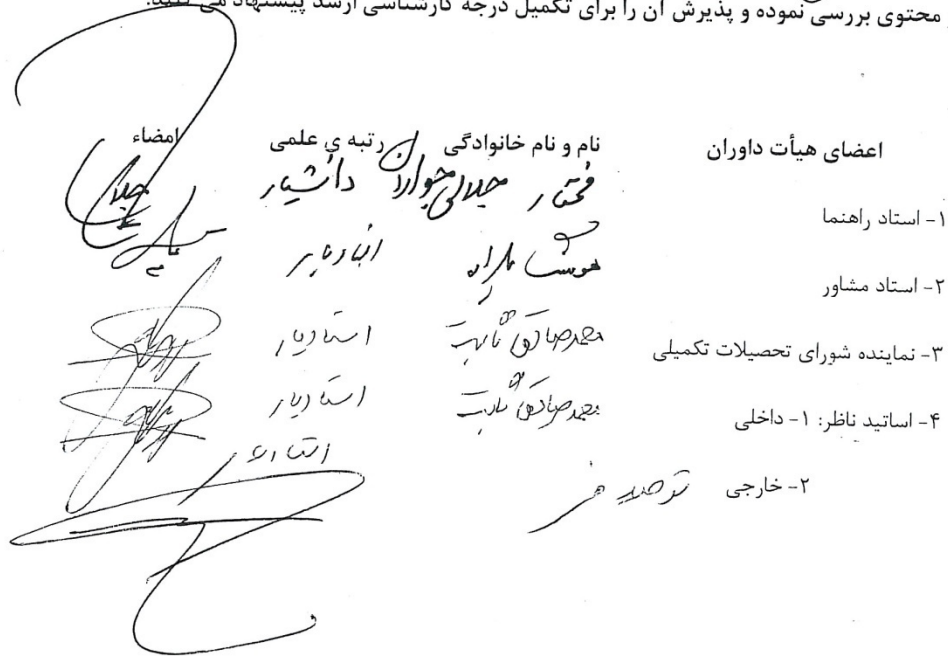 محتوی بررسی نموده و پذیرش آن را برای تکمیل درجه کارشناسی ارشد پیشنهاد می کنند.
اعضای هیأت داوران نام و نام خانوادگی رتبه ی علمی امضاء
۱- استاد راهنما مختار جلالی جواران دانشیار
۲- استاد مشاور استادیار
۳- نماینده شورای تحصیلات تکمیلی محمدصادق ثابت استادیار
۴- اساتید ناظر: ۱- داخلی محمدصادق ثابت استادیار
۲- خارجی استادیار